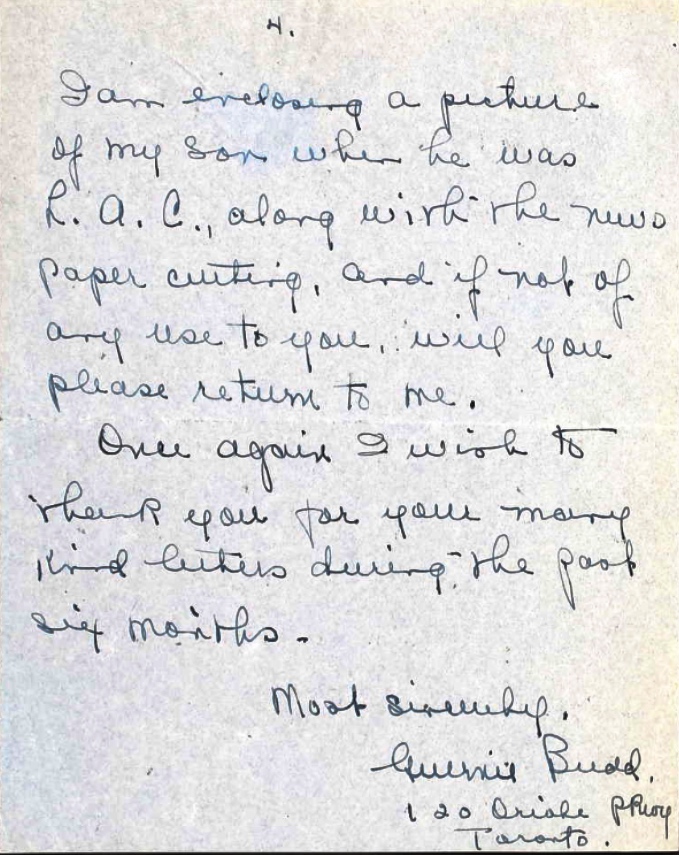 4.
I am enclosing a picture
of my son when he was
L. A. C., along with the news
paper cutting, and if not of
any use to you, will you
please return to me.
Once again I wish to
thank you for your many
kind letters during the past
six months.
Most sincerely,
Budd.
120 Oriole Pkwy
Toronto.